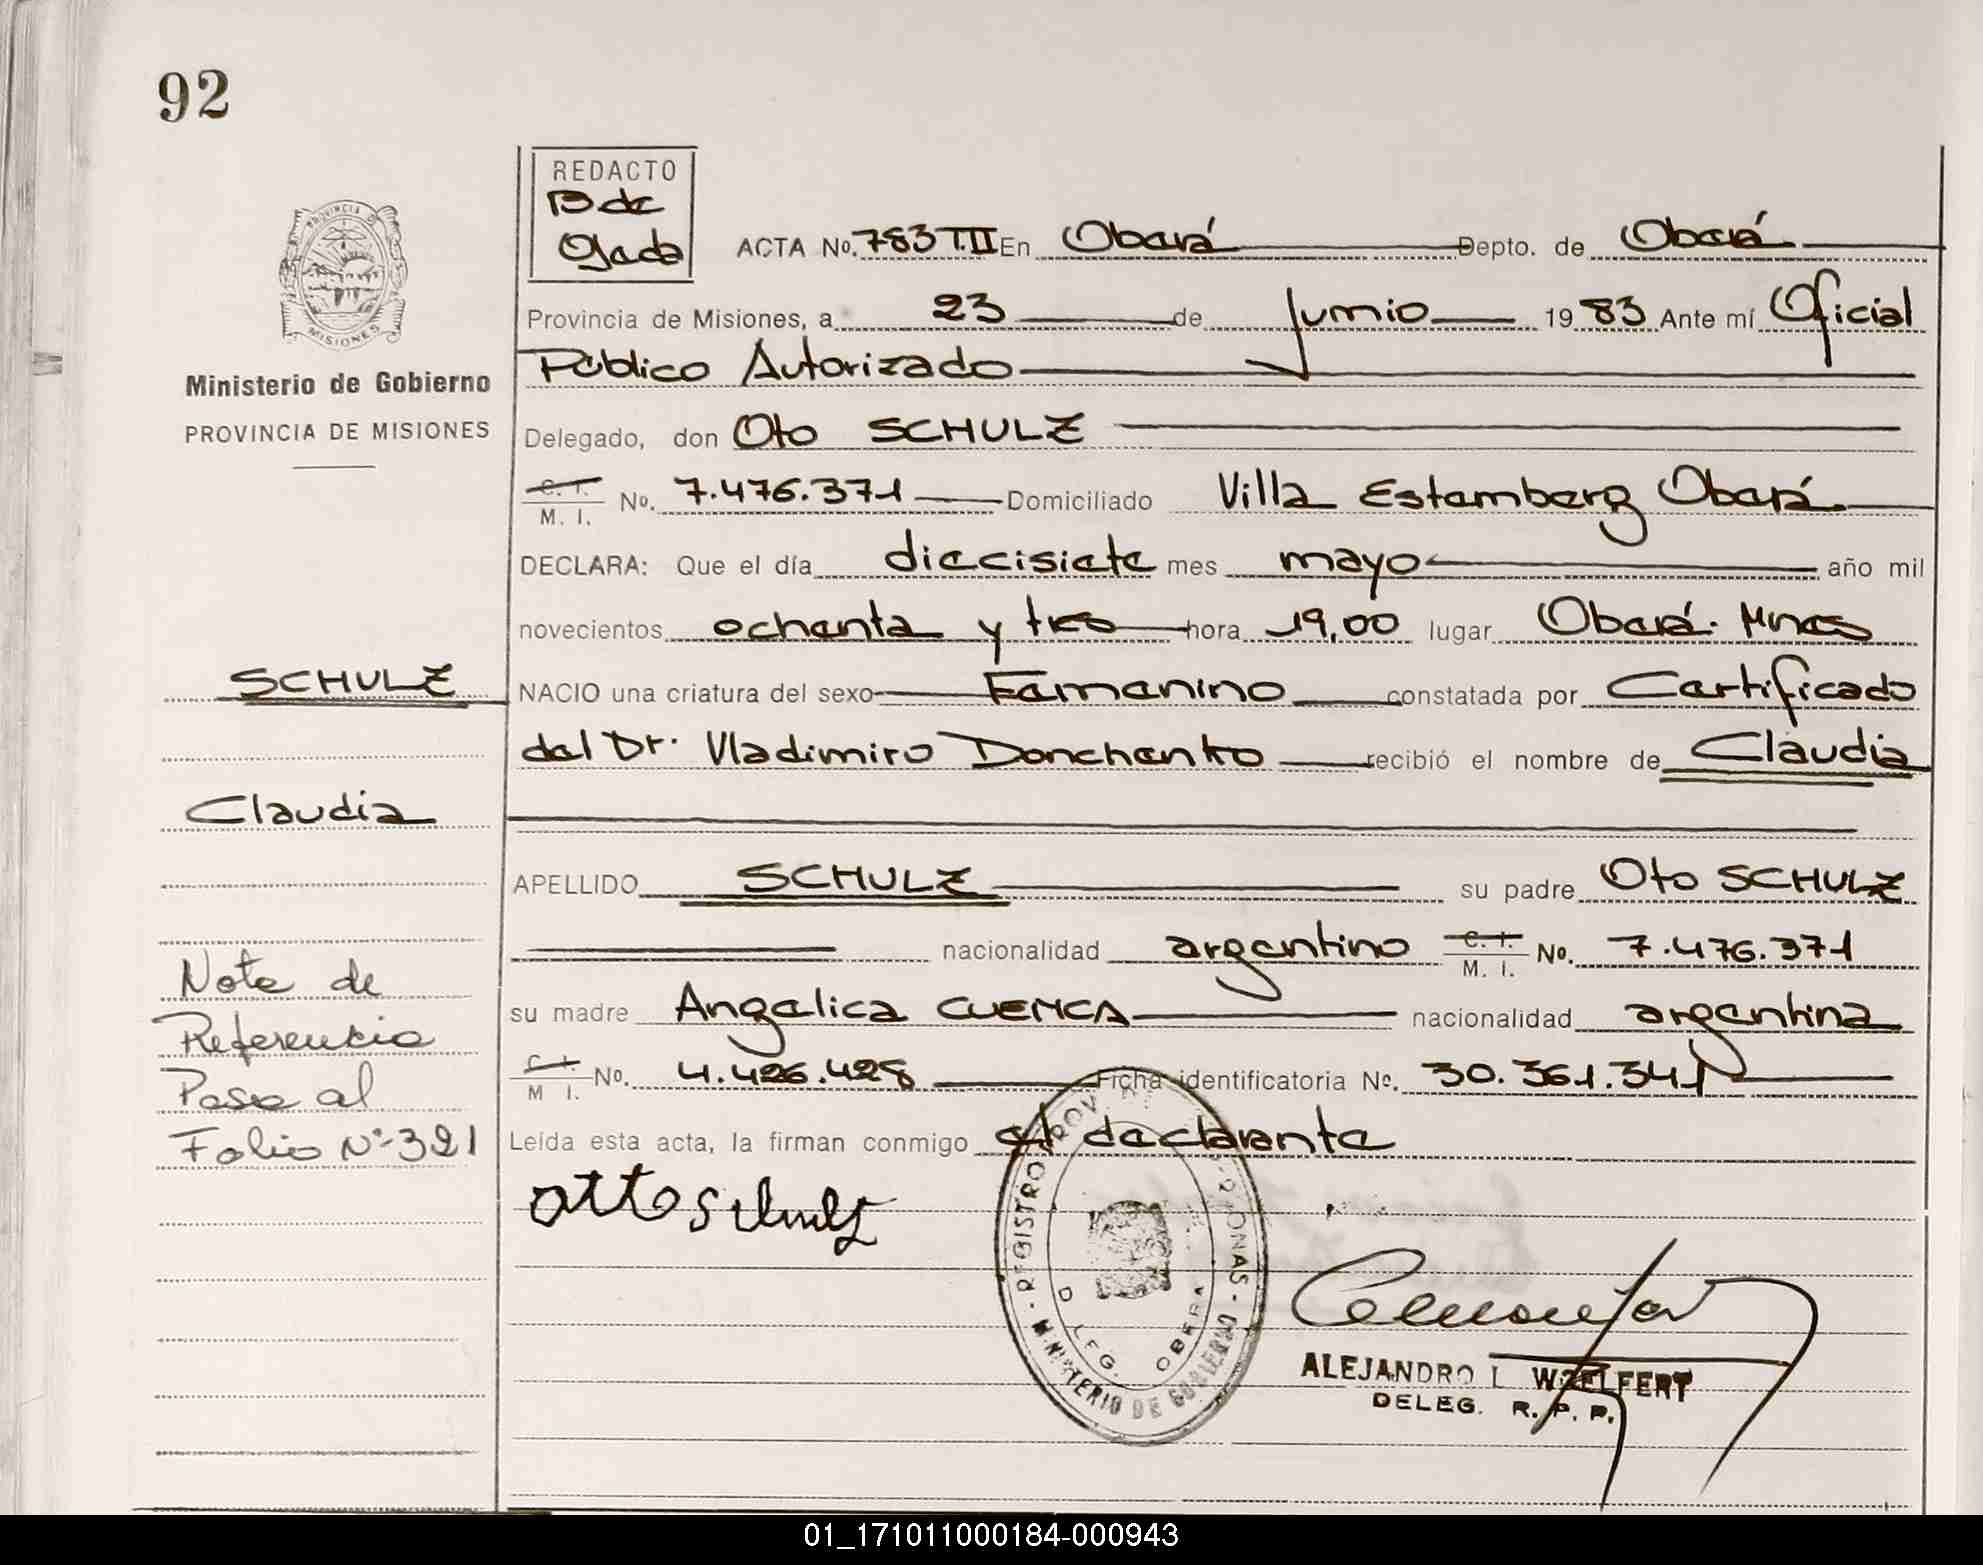 92
REDACTO
B de
Ojeda
PROVINCIA DE
MISIONES
ACTA No. 783 T.II En Oberá Depto. de Oberá
Provincia de Misiones, a 23 de junio 1983 Ante mí Oficial
Público Autorizado
Ministerio de Gobierno
PROVINCIA DE MISIONES
Delegado, don Oto SCHULZ
C. I. / M. I. No. 7.476.371 Domiciliado Villa Estamberg Oberá
DECLARA: Que el día diecisiete mes mayo año mil
novecientos ochenta y tres hora 19,00 lugar Oberá. Mnes
SCHULZ
NACIO una criatura del sexo Femenino constatada por Certificado
del Dr. Vladimiro Donchenko recibió el nombre de Claudia
Claudia
APELLIDO SCHULZ su padre Oto SCHULZ
nacionalidad argentino C. I. / M. I. No. 7.476.371
su madre Angelica CUENCA nacionalidad argentina
C. I. / M I. No. 4.426.428 Ficha identificatoria No. 30.361.341
Leída esta acta, la firman conmigo el declarante
Nota de
Referencia
Pasa al
Folio Nº 321
Otto Schulz
REGISTRO PROV. PERSONAS - MINISTERIO DE GOBIERNO
DELEG. OBERA
ALEJANDRO L. WZELFERT
DELEG. R. P. P.
01_171011000184-000943